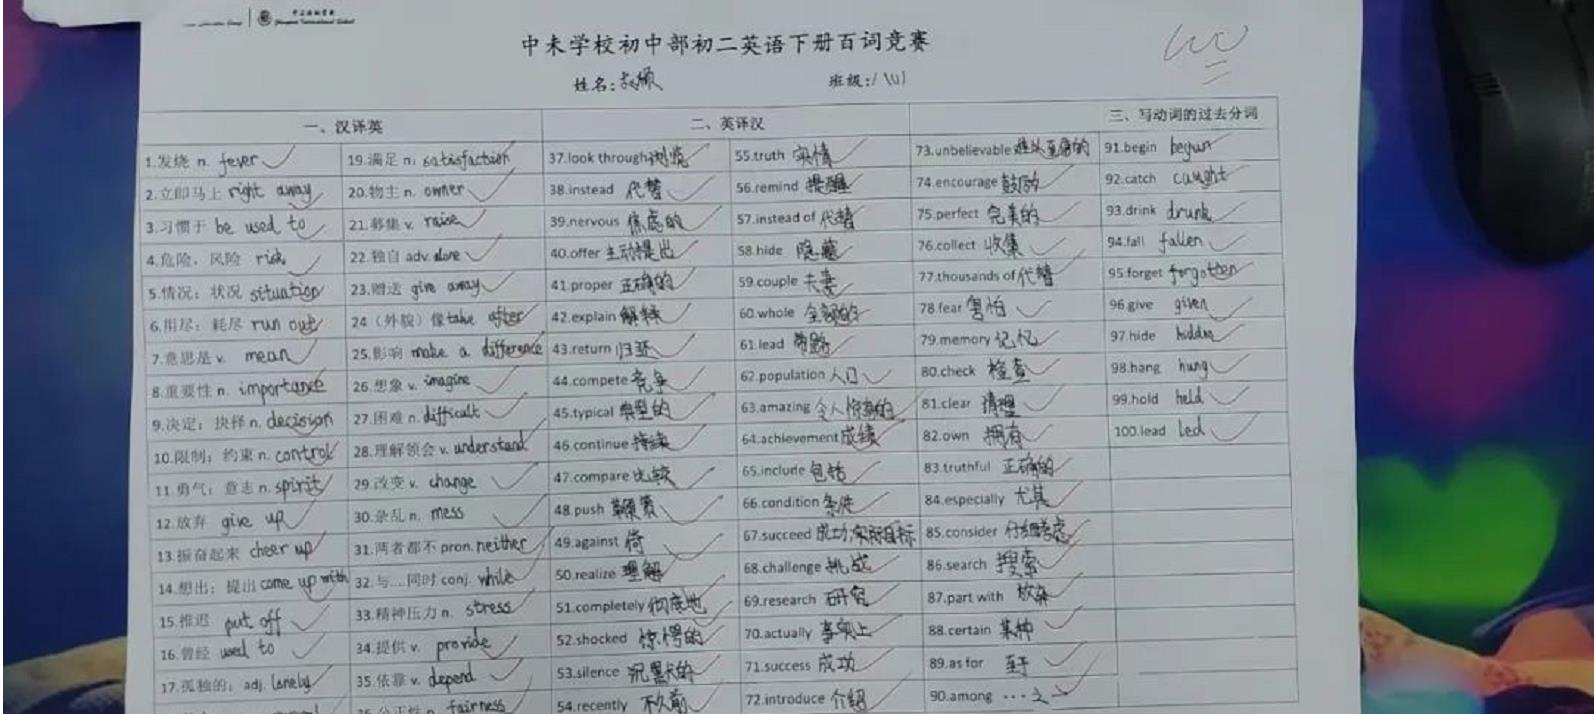 中未学校初中部初二英语下册百词竞赛
姓名:
班级:
一、汉译英 二、英译汉 三、写动词的过去分词
1.发烧 n. fever 19.满足 n. satisfaction 37.look through 浏览 55.truth 实情 73.unbelievable 难以置信的 91.begin begun
2.立即马上 right away 20.物主 n. owner 38.instead 代替 56.remind 提醒 74.encourage 鼓励 92.catch caught
3.习惯于 be used to 21.募集 v. raise 39.nervous 焦虑的 57.instead of 代替 75.perfect 完美的 93.drink drunk
4.危险，风险 risk 22.独自 adv. alone 40.offer 主动提出 58.hide 隐藏 76.collect 收集 94.fall fallen
5.情况；状况 situation 23.赠送 give away 41.proper 正确的 59.couple 夫妻 77.thousands of 代替 95.forget forgotten
6.用尽；耗尽 run out 24（外貌）像 take after 42.explain 解释 60.whole 全部的 78.fear 害怕 96.give given
7.意思是 v. mean 25.影响 make a difference 43.return 归还 61.lead 带路 79.memory 记忆 97.hide hidden
8.重要性 n. importance 26.想象 v. imagine 44.compete 竞争 62.population 人口 80.check 检查 98.hang hung
9.决定；抉择 n. decision 27.困难 n. difficult 45.typical 典型的 63.amazing 令人惊讶的 81.clear 清理 99.hold held
10.限制；约束 n. control 28.理解领会 v. understand 46.continue 持续 64.achievement 成绩 82.own 拥有 100.lead led
11.勇气；意志 n. spirit 29.改变 v. change 47.compare 比较 65.include 包括 83.truthful 正确的
12.放弃 give up 30.杂乱 n. mess 48.push 鞭策 66.condition 条件 84.especially 尤其
13.振奋起来 cheer up 31.两者都不 pron. neither 49.against 倚 67.succeed 成功,实际目标 85.consider 仔细考虑
14.想出；提出 come up with 32.与....同时 conj. while 50.realize 理解 68.challenge 挑战 86.search 搜索
15.推迟 put off 33.精神压力 n. stress 51.completely 彻底地 69.research 研究 87.part with 放弃
16.曾经 used to 34.提供 v. provide 52.shocked 惊愕的 70.actually 事实上 88.certain 某种
17.孤独的；adj. lonely 35.依靠 v. depend 53.silence 沉默的 71.success 成功 89.as for 至于
36.公正性 n. fairness 54.recently 不久前 72.introduce 介绍 90.among …之